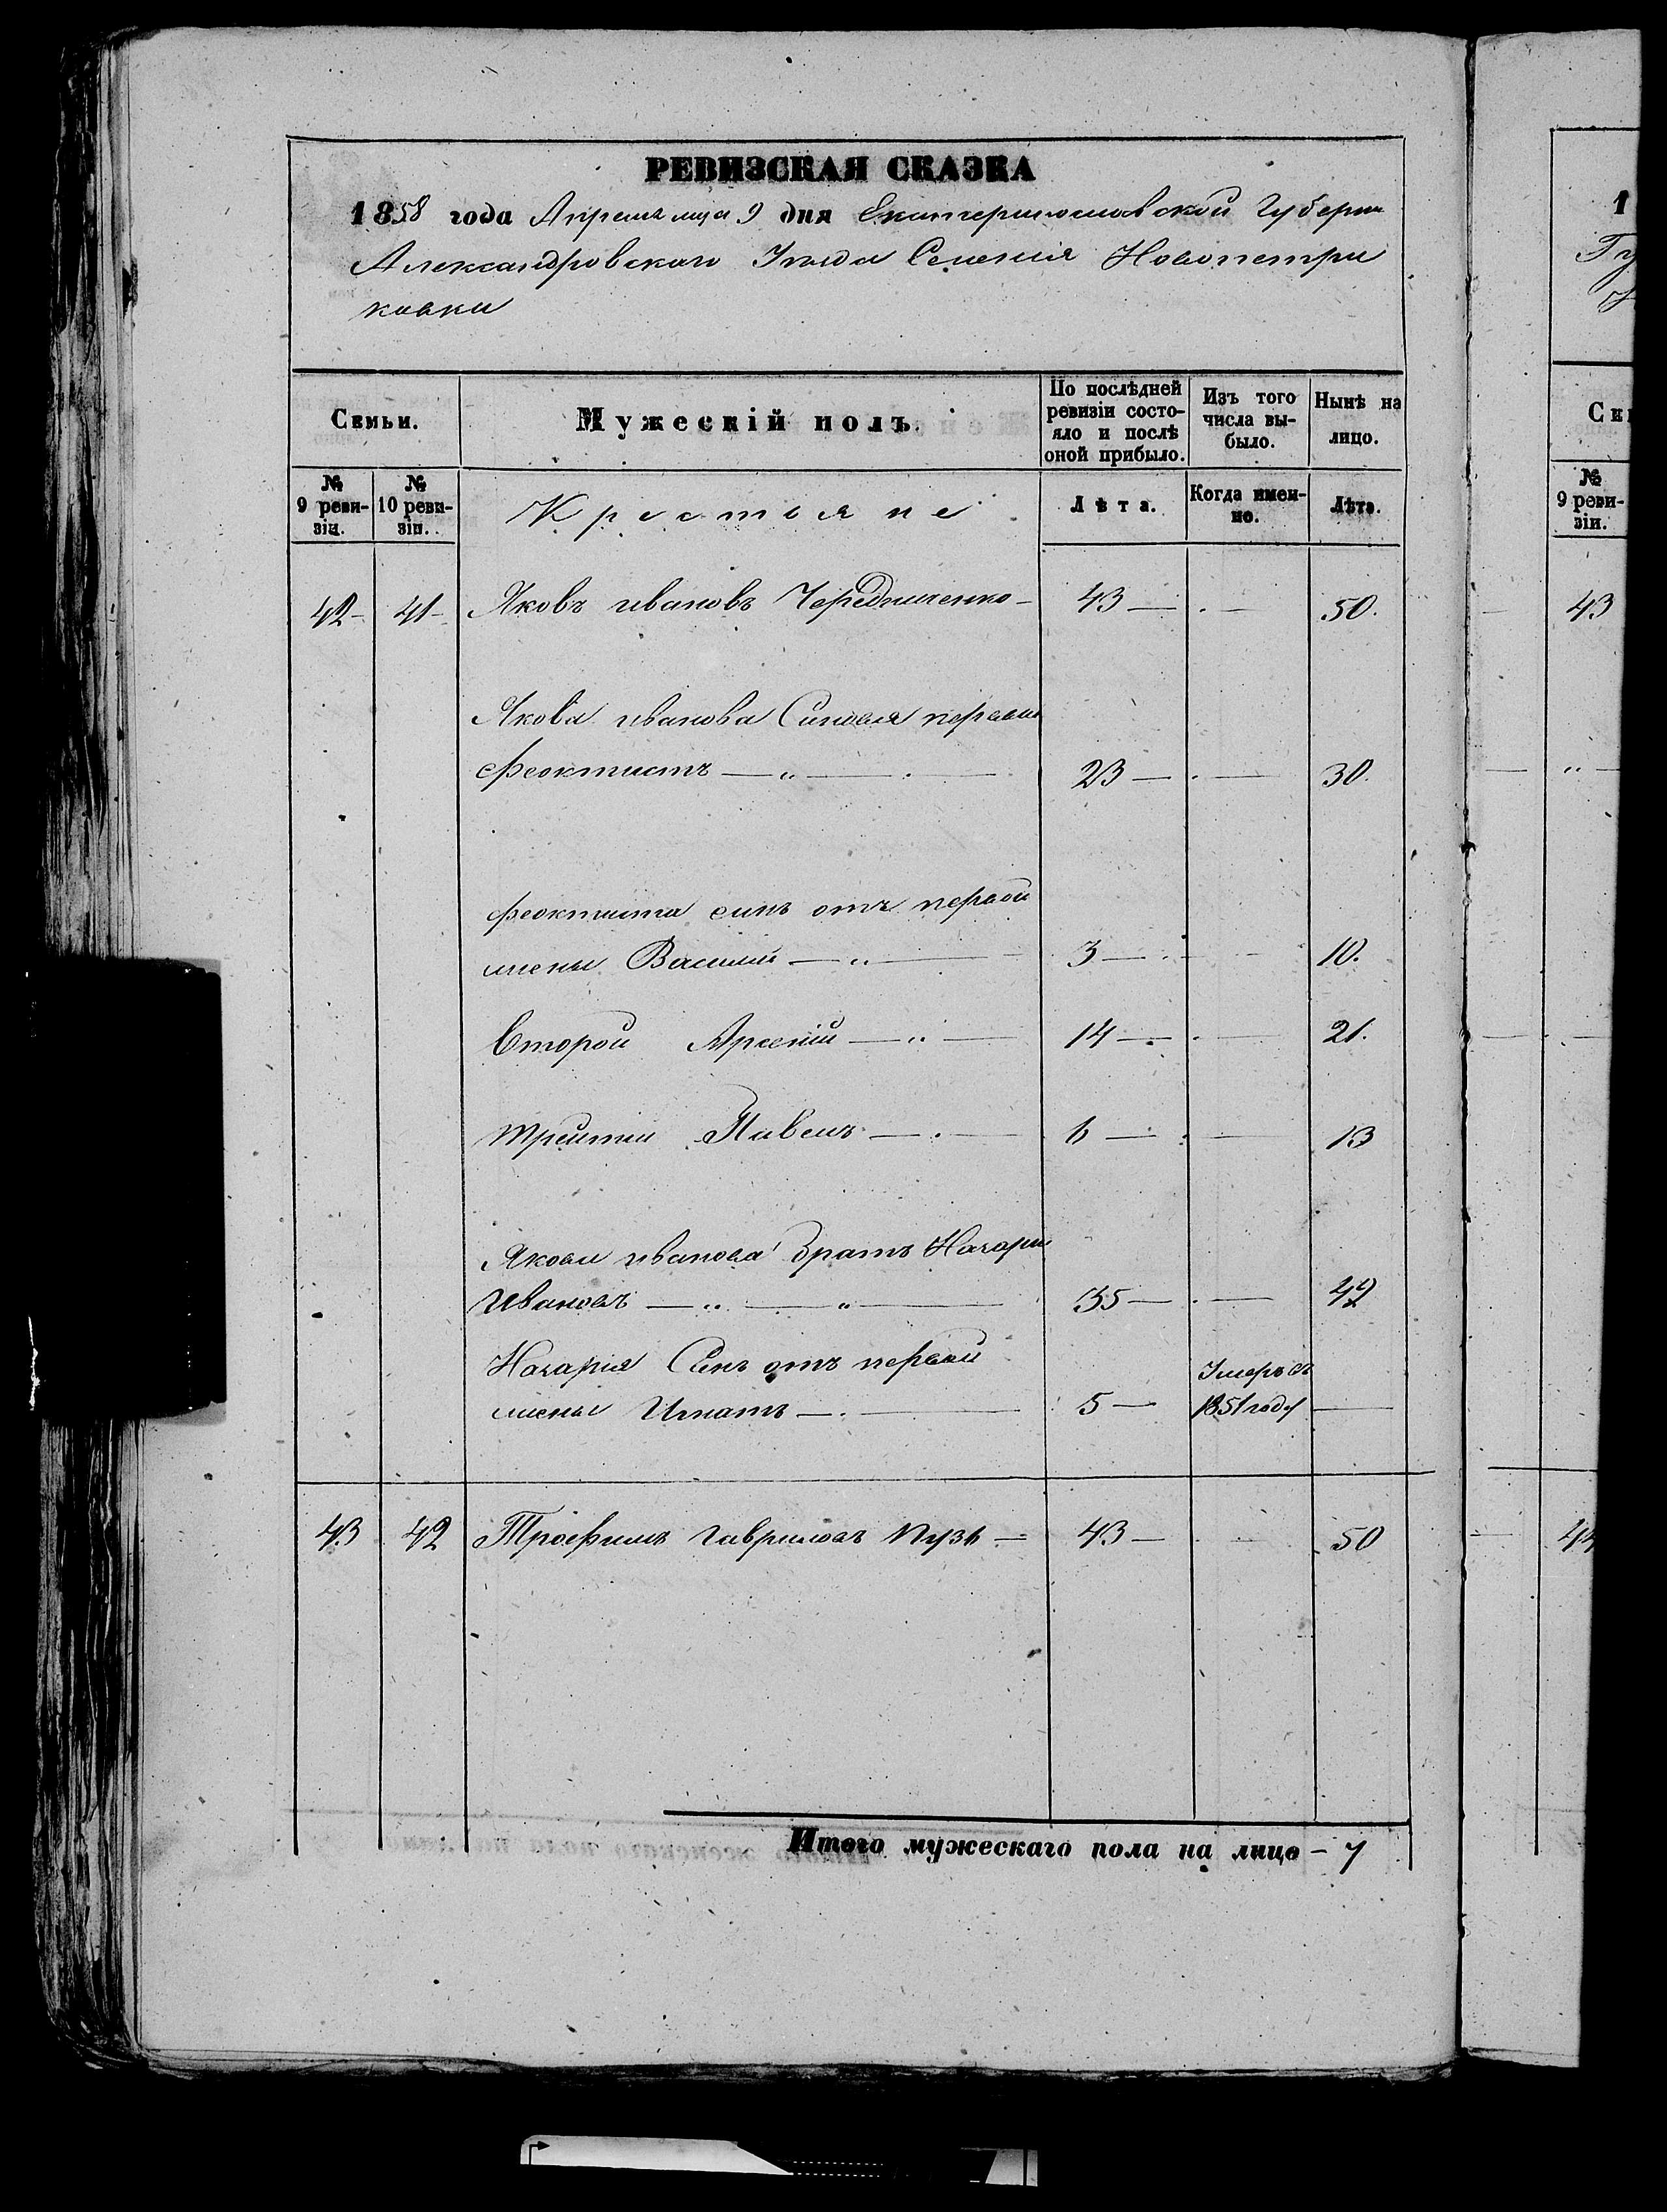 РЕВИЗСКАЯ СКАЗКА
1858 года Апреля мца 9 дня Екатеринославской Губерн
Александровскаго Уезда Селенія Новопетри
ковки
Семьи.
Мужескій полъ.
По послѣдней ревизіи состо-
яло и послѣ
оной прибыло.
Изъ того
числа вы-
было.
Нынѣ на
лицо.
№ 9 реви-
зіи.
№ 10 реви-
зіи.
Крестьяне
Лѣта.
Когда имен-
но.
Лѣта.
42 - 41 - Яковъ ивановъ Чередниченко - 43 — . — 50.
Якова иванова Синовя первый
Феоктистъ — „ — . — 23 — . — 30.
Феоктиста синъ отъ первой
жены Василий — „ — 3 — . — 10.
Второй Арсеній — „ — 14 — . — 21.
Третий Павелъ — . — 6 — . — 13
Якова иванова братъ Назарий
Ивановъ — „ — „ — 35 — . — 42
Назария Синъ отъ первой
жены Игнатъ — . — 5 — Умеръ въ
1851 году —
43 42 Трофимъ гавриловъ Пузь — 43 — . — 50
Итого мужескаго пола на лицо - 7
1
Гу
У
Се
№ 9 реви-
зіи.
43
„ —
44